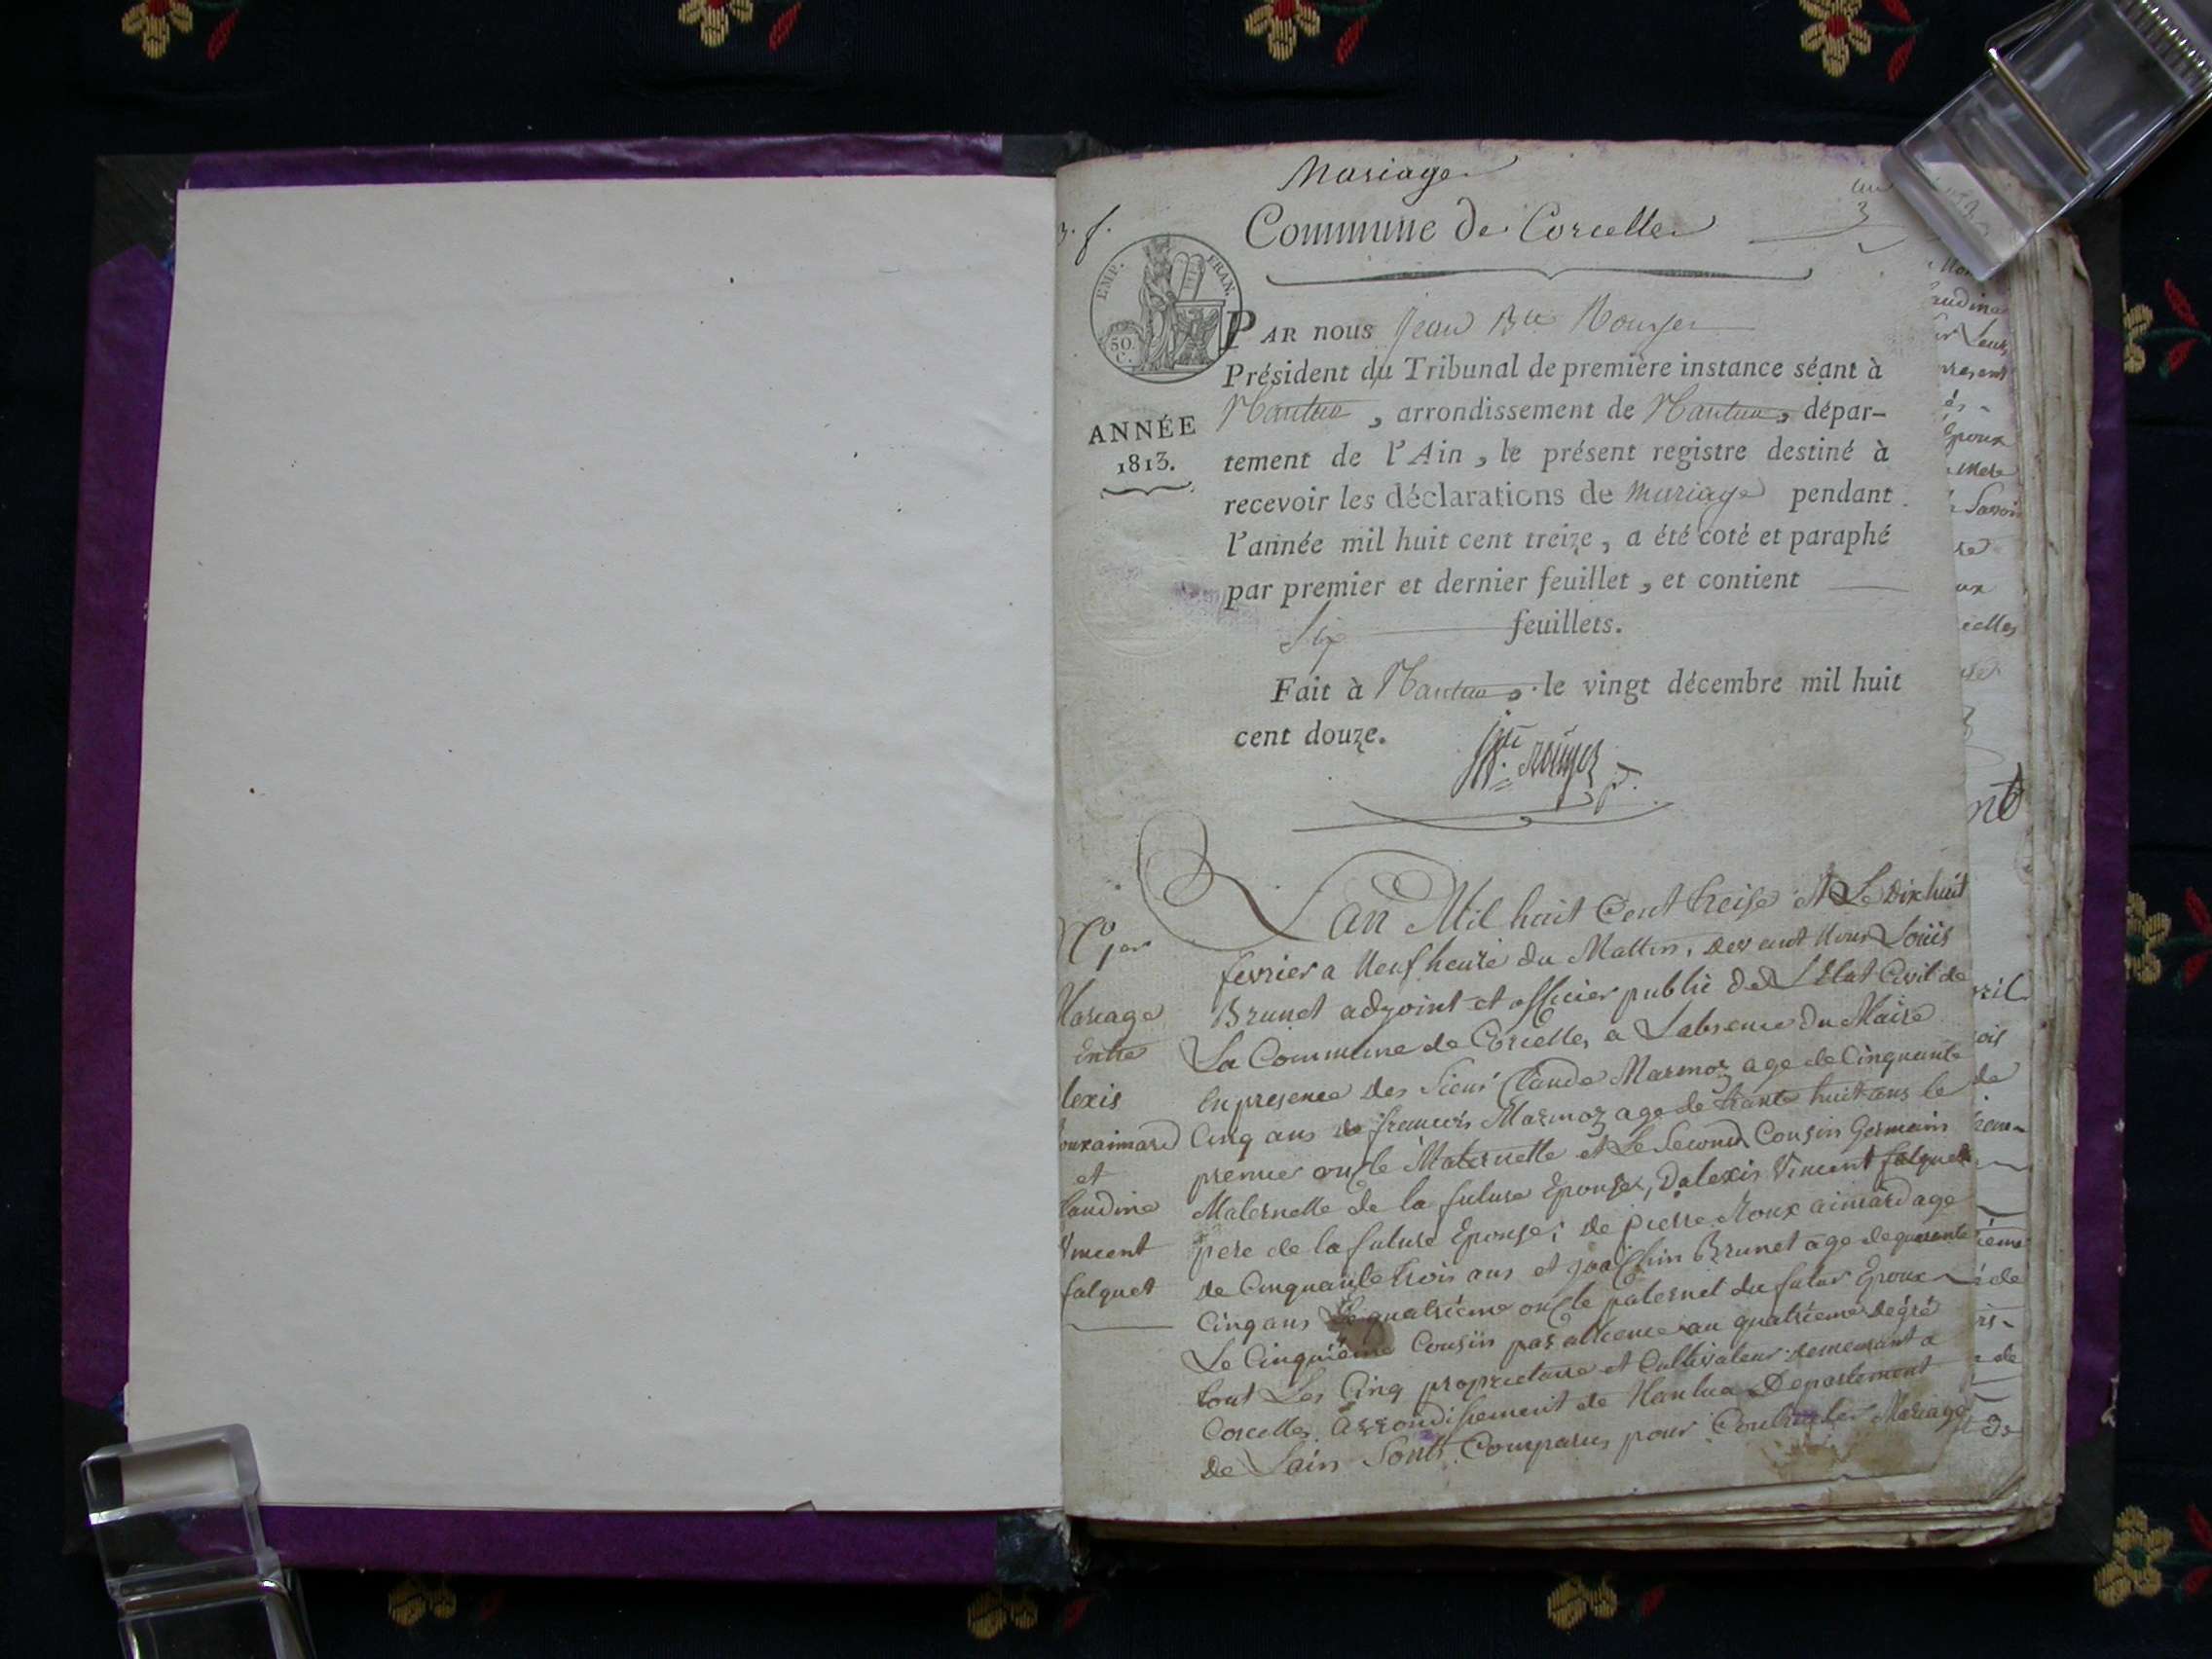 Mariage
Commune de Corcelle
3. f.
3
EMP. FRAN.
50.
C.
PAR nous Jean Bte Rouyer
Président du Tribunal de première instance séant à
Nantua, arrondissement de Nantua, dépar-
tement de l'Ain, le présent registre destiné à
recevoir les déclarations de mariage pendant
l'année mil huit cent treize, a été coté et paraphé
par premier et dernier feuillet, et contient
Six feuillets.
Fait à Nantua, le vingt décembre mil huit
cent douze.
ANNÉE
1813.
N° 1er
Mariage
Entre
lexis
ouxaimard
et
laudine
Vincent
falquet
L'an Mil huit Cent treise et Le Dixhuit
fevrier a Neuf heure du Mattin, devant Nous Loüis
Brunet adjoint et officier public de L'Etat Civil de
La Commune de Corcelles a Labsence du Maire
En presence des Sieur Claude Marmoz age de Cinquante
Cinq ans de francois Marmoz age de trante huit ans le
premier oncle Maternelle et Le Second Cousin Germain
Maternelle de la future Epouse, Dalexis Vincent falquet
pere de la future Epouse; de pierre Roux aimard age
de Cinquante trois ans et joachin Brunet age de quarante
Cinq ans Le quatrieme oncle paternel du futur Epoux
Le Cinquieme Cousin par alience au quatrieme degré
tout Les Cinq proprietaire et Cultivateur demeurant a
Corcelles arrondissement de Nantua Departement
de Lain Sont Comparus pour Contracter Mariage
audine
Leurs
present
Epoux
Mere
Savoir
celles